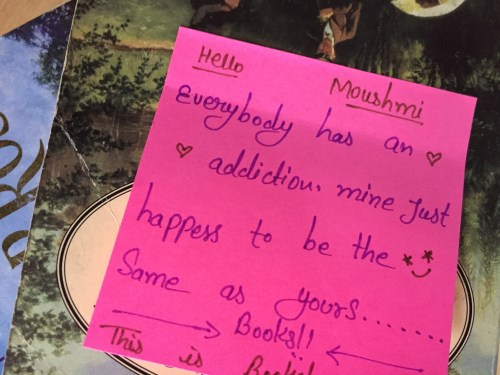 Hello Moushmi
Everybody has an
addiction. mine Just
happess to be the
Same as yours.......
Books!!
This is